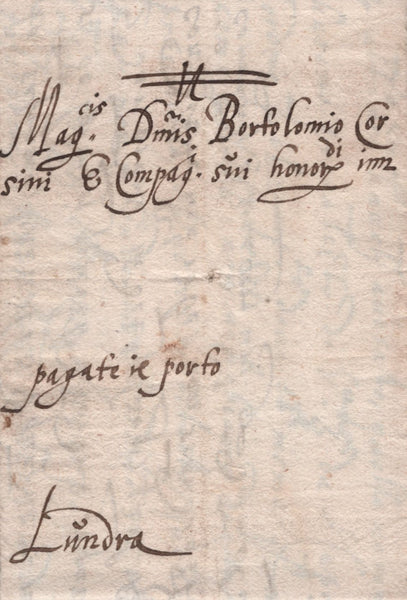 Mag.cis Dnis Bortolomio Cor
sini & Compag.i sui honor.di inn
pagate ie porto
Lundra